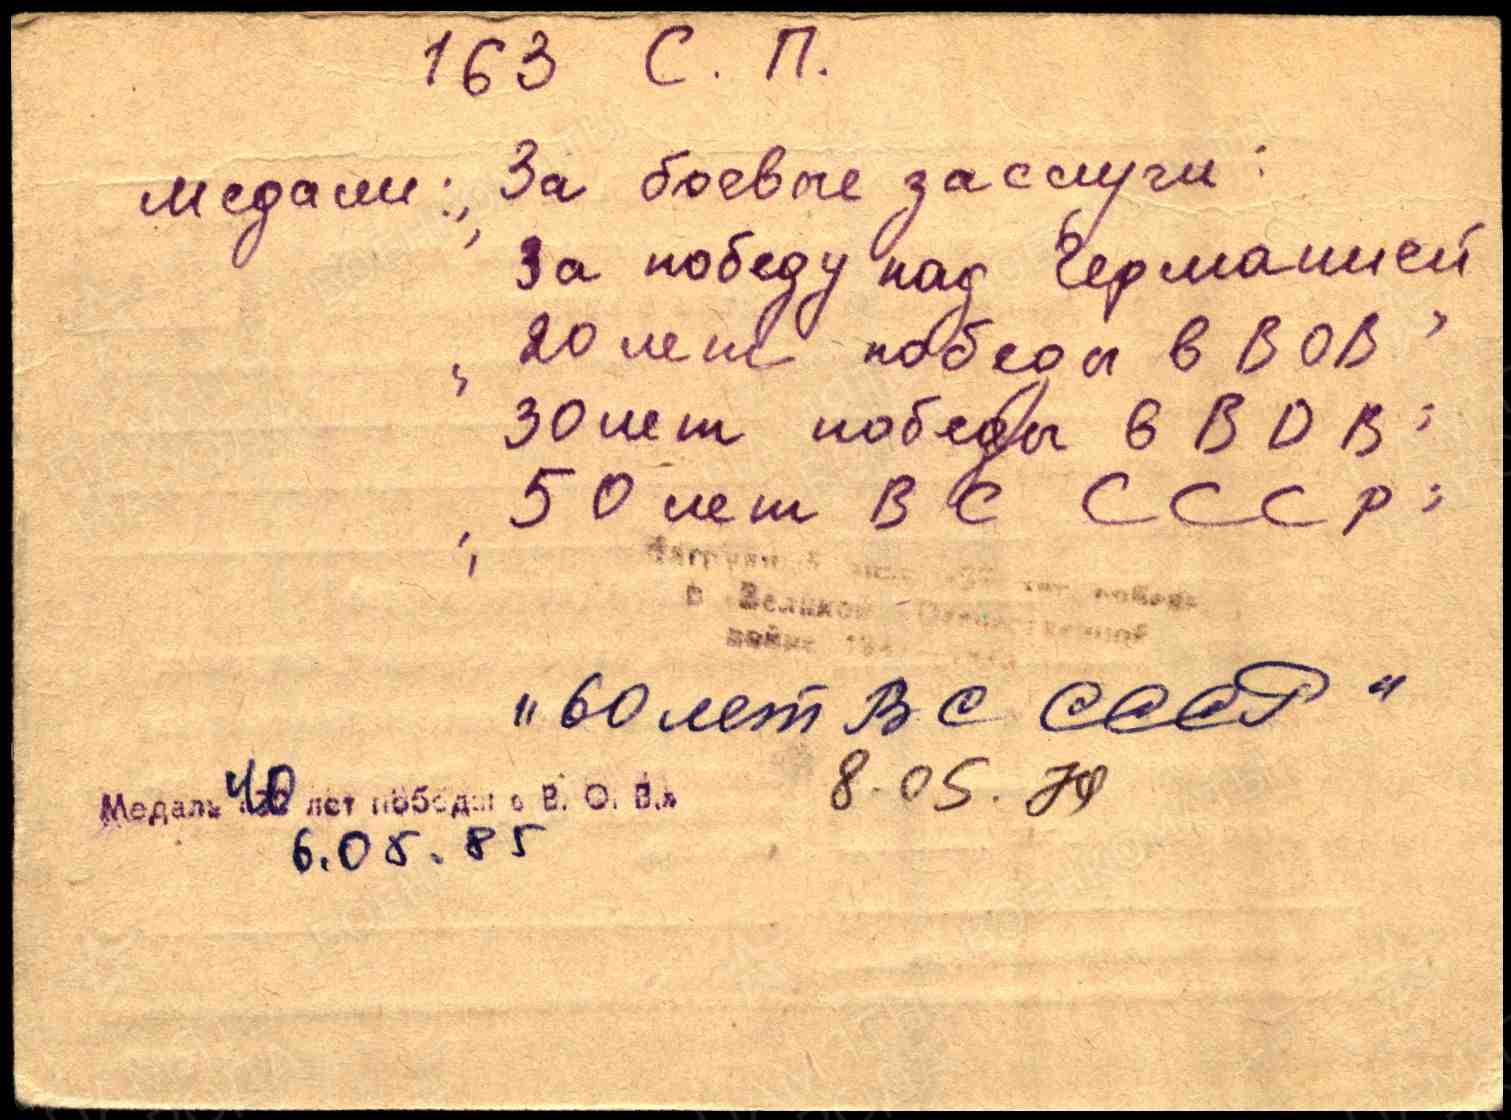 163 С. П.
медали: „За боевые заслуги:
„За победу над Германией
20 лет победы в ВОВ"
„30 лет победы в ВОВ:
50 лет ВС СССР:
в Великой Отечественной
войне
"60 лет ВС СССР"
Медаль 40 лет победы в В. О. В.»
8.05.
6.05.85